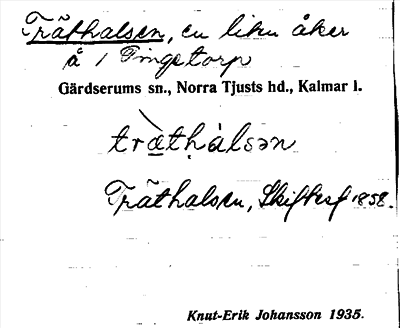 Träthalsen, en liten åker
å 1 Pingetorp
Gärdserums sn., Norra Tjusts hd., Kalmar l.
trä̀tḥàlsən
Träthalsen, Skifteskf 1858.
Knut-Erik Johansson 1935.